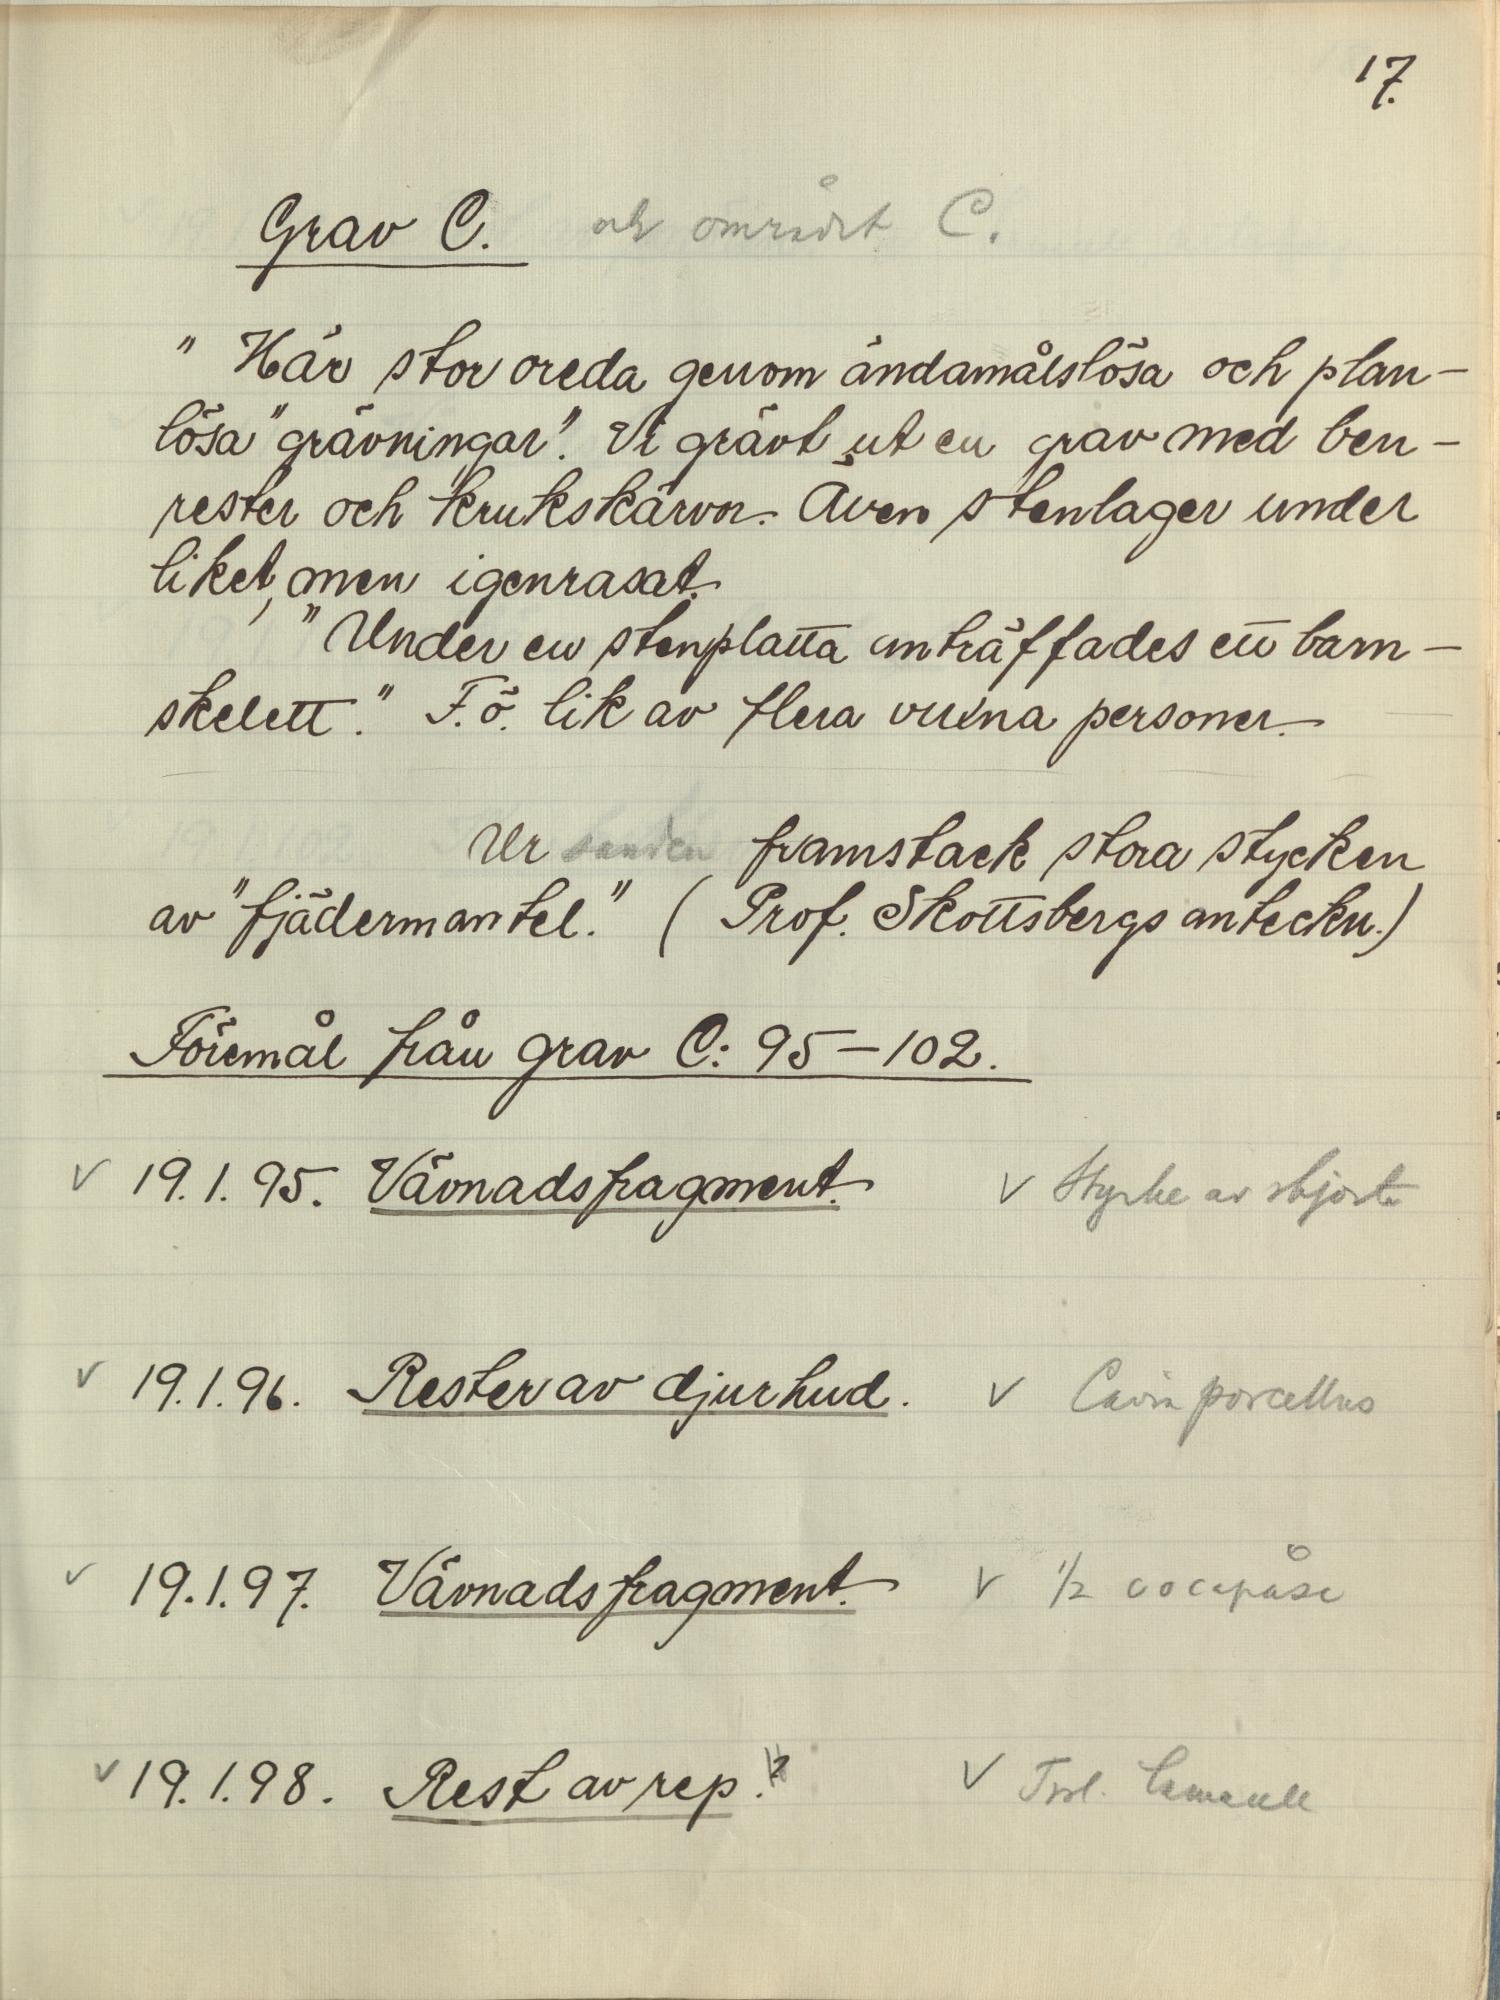 17.
Grav C. och området C.
" Här stor oreda genom ändamålslösa och plan-
lösa "grävningar". Vi grävt ut en grav med ben-
rester och krukskärvor. Även stenlager under
liket, men igenrasat.
"Under en stenplatta anträffades ett barn-
skelett." F.ö. lik av flera vuxna personer.
Ur sanden framstack stora stycken
av "fjädermantel." (Prof. Skottsbergs anteckn.)
Föremål från grav C: 95-102.
v 19.1.95. Vävnadsfragment. v Stycke av skjorta
v 19.1.96. Rester av djurhud. v Cavia porcellus
v 19.1.97. Vävnadsfragment. v 1/2 cocapåse
v 19.1.98. Rest av rep. ? v